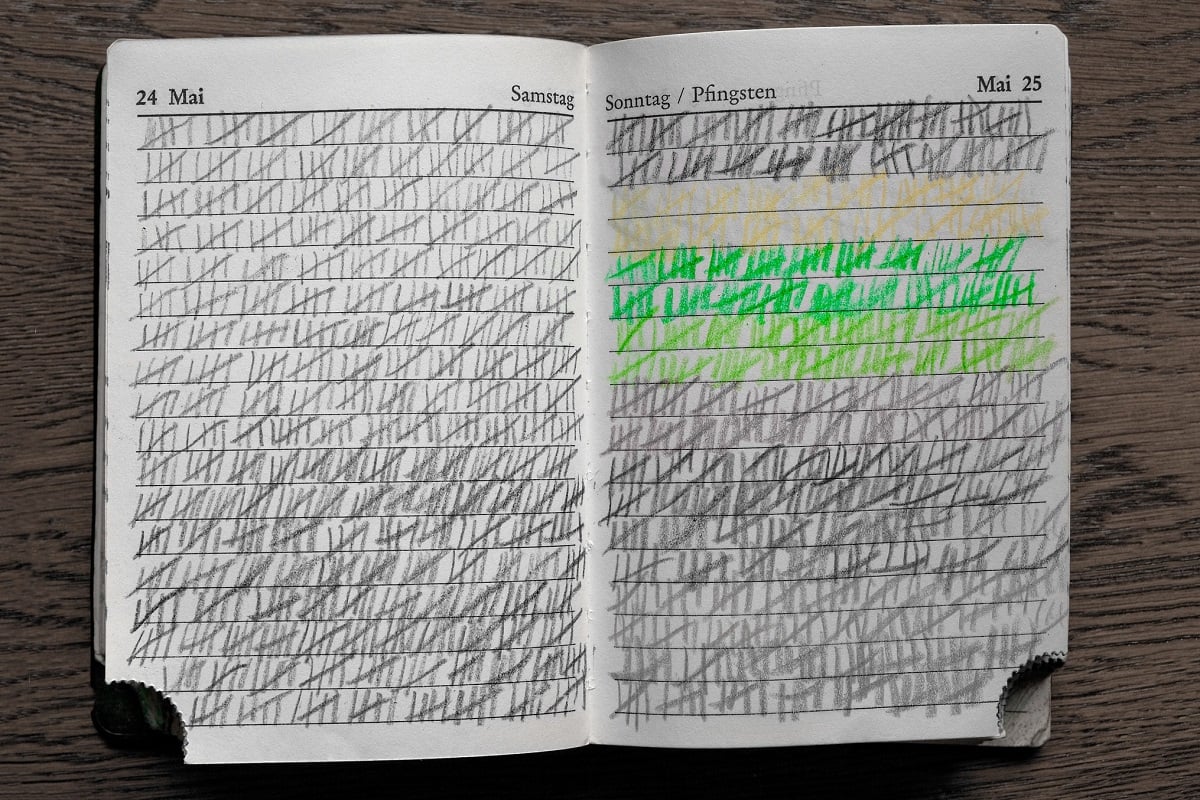 24 Mai
Samstag
Sonntag / Pfingsten
Mai 25